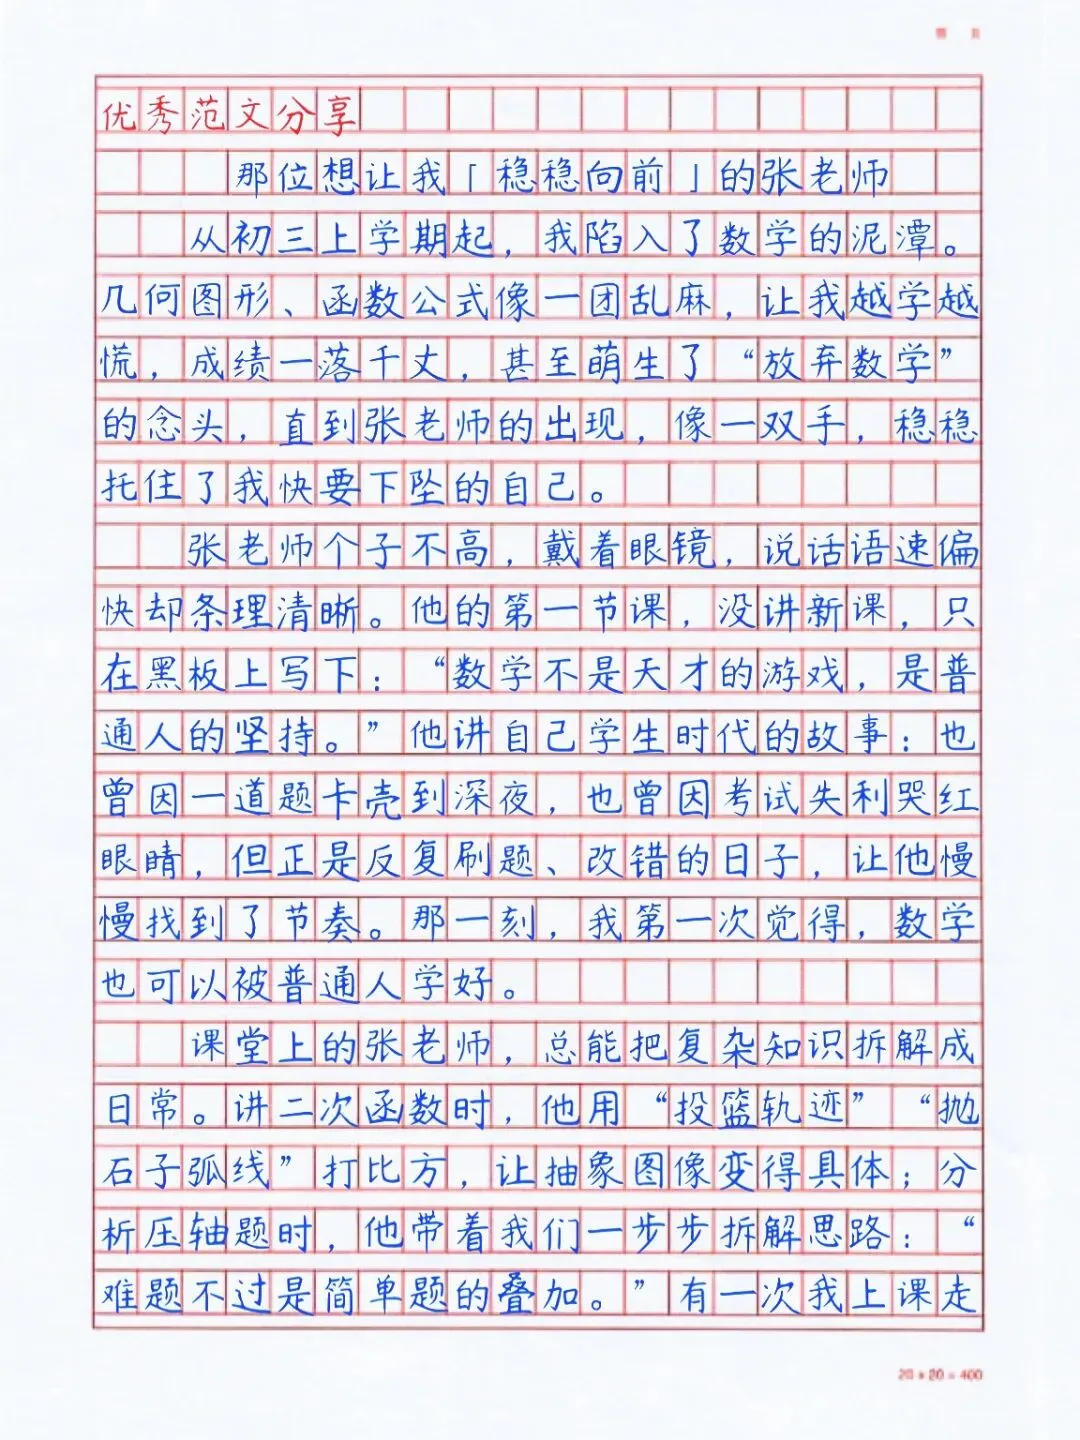 优秀范文分享
那位想让我「稳稳向前」的张老师
从初三上学期起，我陷入了数学的泥潭。
几何图形、函数公式像一团乱麻，让我越学越
慌，成绩一落千丈，甚至萌生了“放弃数学”
的念头，直到张老师的出现，像一双手，稳稳
托住了我快要下坠的自己。
张老师个子不高，戴着眼镜，说话语速偏
快却条理清晰。他的第一节课，没讲新课，只
在黑板上写下：“数学不是天才的游戏，是普
通人的坚持。”他讲自己学生时代的故事：也
曾因一道题卡壳到深夜，也曾因考试失利哭红
眼睛，但正是反复刷题、改错的日子，让他慢
慢找到了节奏。那一刻，我第一次觉得，数学
也可以被普通人学好。
课堂上的张老师，总能把复杂知识拆解成
日常。讲二次函数时，他用“投篮轨迹”“抛
石子弧线”打比方，让抽象图像变得具体；分
析压轴题时，他带着我们一步步拆解思路：“
难题不过是简单题的叠加。”有一次我上课走
20×20=400